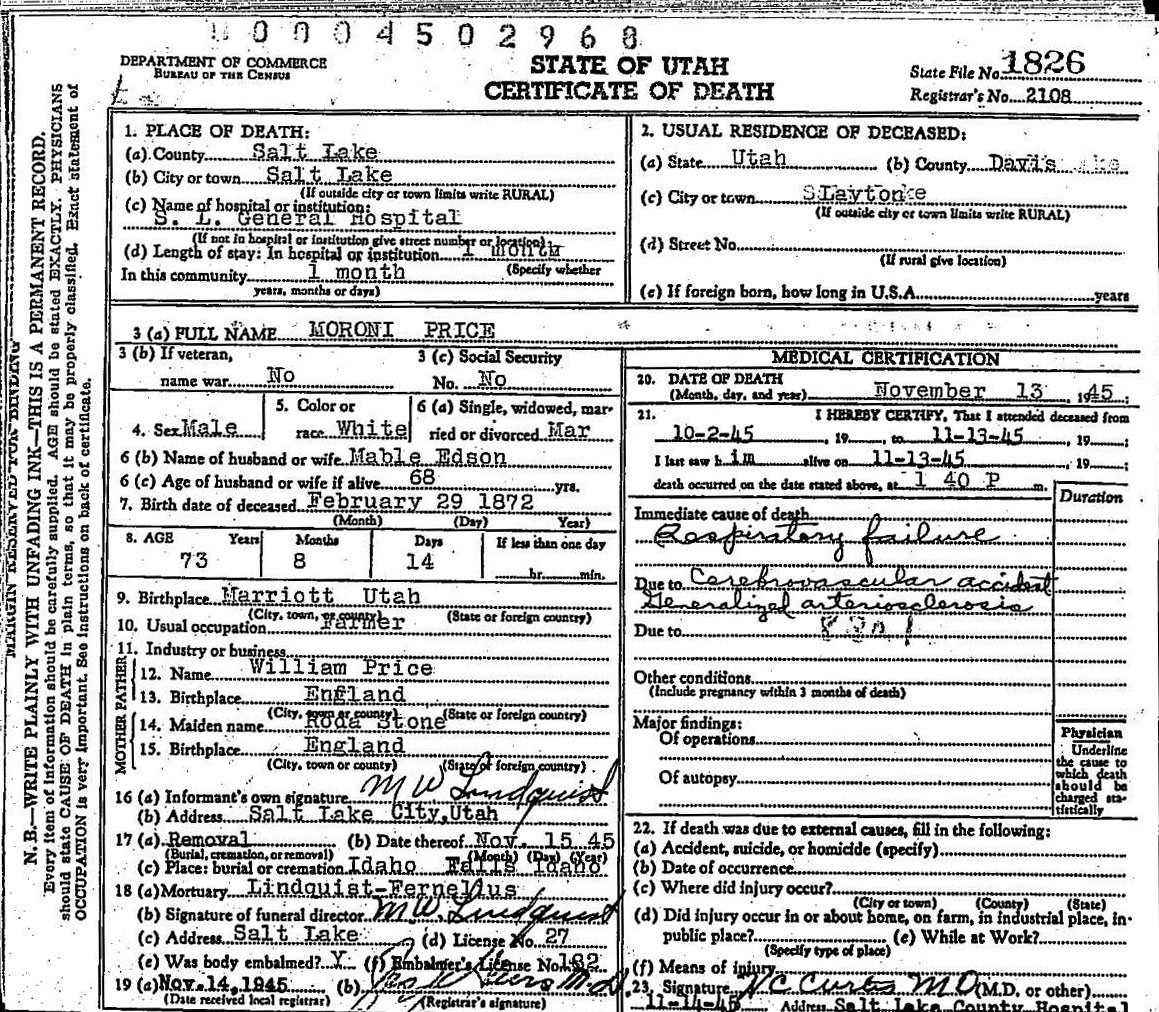 0004502968
DEPARTMENT OF COMMERCE
BUREAU OF THE CENSUS
STATE OF UTAH
CERTIFICATE OF DEATH
State File No. 1826
Registrar's No. 2108
MARGIN RESERVED FOR BINDING
N. B.—WRITE PLAINLY WITH UNFADING INK—THIS IS A PERMANENT RECORD.
Every item of information should be carefully supplied. AGE should be stated EXACTLY. PHYSICIANS
should state CAUSE OF DEATH in plain terms, so that it may be properly classified. Exact statement of
OCCUPATION is very important. See instructions on back of certificate.
1. PLACE OF DEATH:
(a) County Salt Lake
(b) City or town Salt Lake
(If outside city or town limits write RURAL)
(c) Name of hospital or institution:
S. L. General Hospital
(If not in hospital or institution give street number or location)
(d) Length of stay: In hospital or institution 1 month
(Specify whether
In this community 1 month
years, months or days)
2. USUAL RESIDENCE OF DECEASED:
(a) State Utah (b) County Davis
(c) City or town Layton
(If outside city or town limits write RURAL)
(d) Street No.
(If rural give location)
(e) If foreign born, how long in U.S.A. years
3 (a) FULL NAME MORONI PRICE
3 (b) If veteran,
name war No
3 (c) Social Security
No. No
4. Sex Male
5. Color or
race White
6 (a) Single, widowed, mar-
ried or divorced Mar
6 (b) Name of husband or wife Mable Edson
6 (c) Age of husband or wife if alive 68 yrs.
7. Birth date of deceased February 29 1872
(Month) (Day) Year)
8. AGE Years Months Days If less than one day
73 8 14 hr. min.
9. Birthplace Marriott Utah
(City, town, or county) (State or foreign country)
10. Usual occupation Farmer
11. Industry or business
FATHER
12. Name William Price
13. Birthplace England
(City, town or county) (State or foreign country)
MOTHER
14. Maiden name Roda Stone
15. Birthplace England
(City, town or county) (State of foreign country)
16 (a) Informant's own signature M W Lindquist
(b) Address Salt Lake City, Utah
17 (a) Removal (b) Date thereof Nov. 15 45
(Burial, cremation, or removal) (Month) (Day) (Year)
(c) Place: burial or cremation Idaho Falls Idaho
18 (a) Mortuary Lindquist-Fernelius
(b) Signature of funeral director M W Lindquist
(c) Address Salt Lake (d) License No. 27
(e) Was body embalmed? Y (f) Embalmer's License No. 182
19 (a) Nov. 14, 1945 (b) M.D.
(Date received local registrar) (Registrar's signature)
MEDICAL CERTIFICATION
20. DATE OF DEATH
(Month, day, and year) November 13, 1945
21. I HEREBY CERTIFY, That I attended deceased from
10-2-45, 19 , to 11-13-45, 19 ;
I last saw him alive on 11-13-45, 19 ;
death occurred on the date stated above, at 1 40 P m.
Duration
Immediate cause of death
Respiratory failure
Due to Cerebrovascular accident
Generalized arteriosclerosis
Due to
Other conditions
(Include pregnancy within 3 months of death)
Major findings:
Of operations
Of autopsy
Physician
Underline
the cause to
which death
should be
charged sta-
tistically
22. If death was due to external causes, fill in the following:
(a) Accident, suicide, or homicide (specify)
(b) Date of occurrence
(c) Where did injury occur?
(City or town) (County) (State)
(d) Did injury occur in or about home, on farm, in industrial place, in-
public place? (e) While at Work?
(Specify type of place)
(f) Means of injury
23. Signature N C Curtis M D (M.D. or other)
11-14-45 Address Salt Lake County Hospital